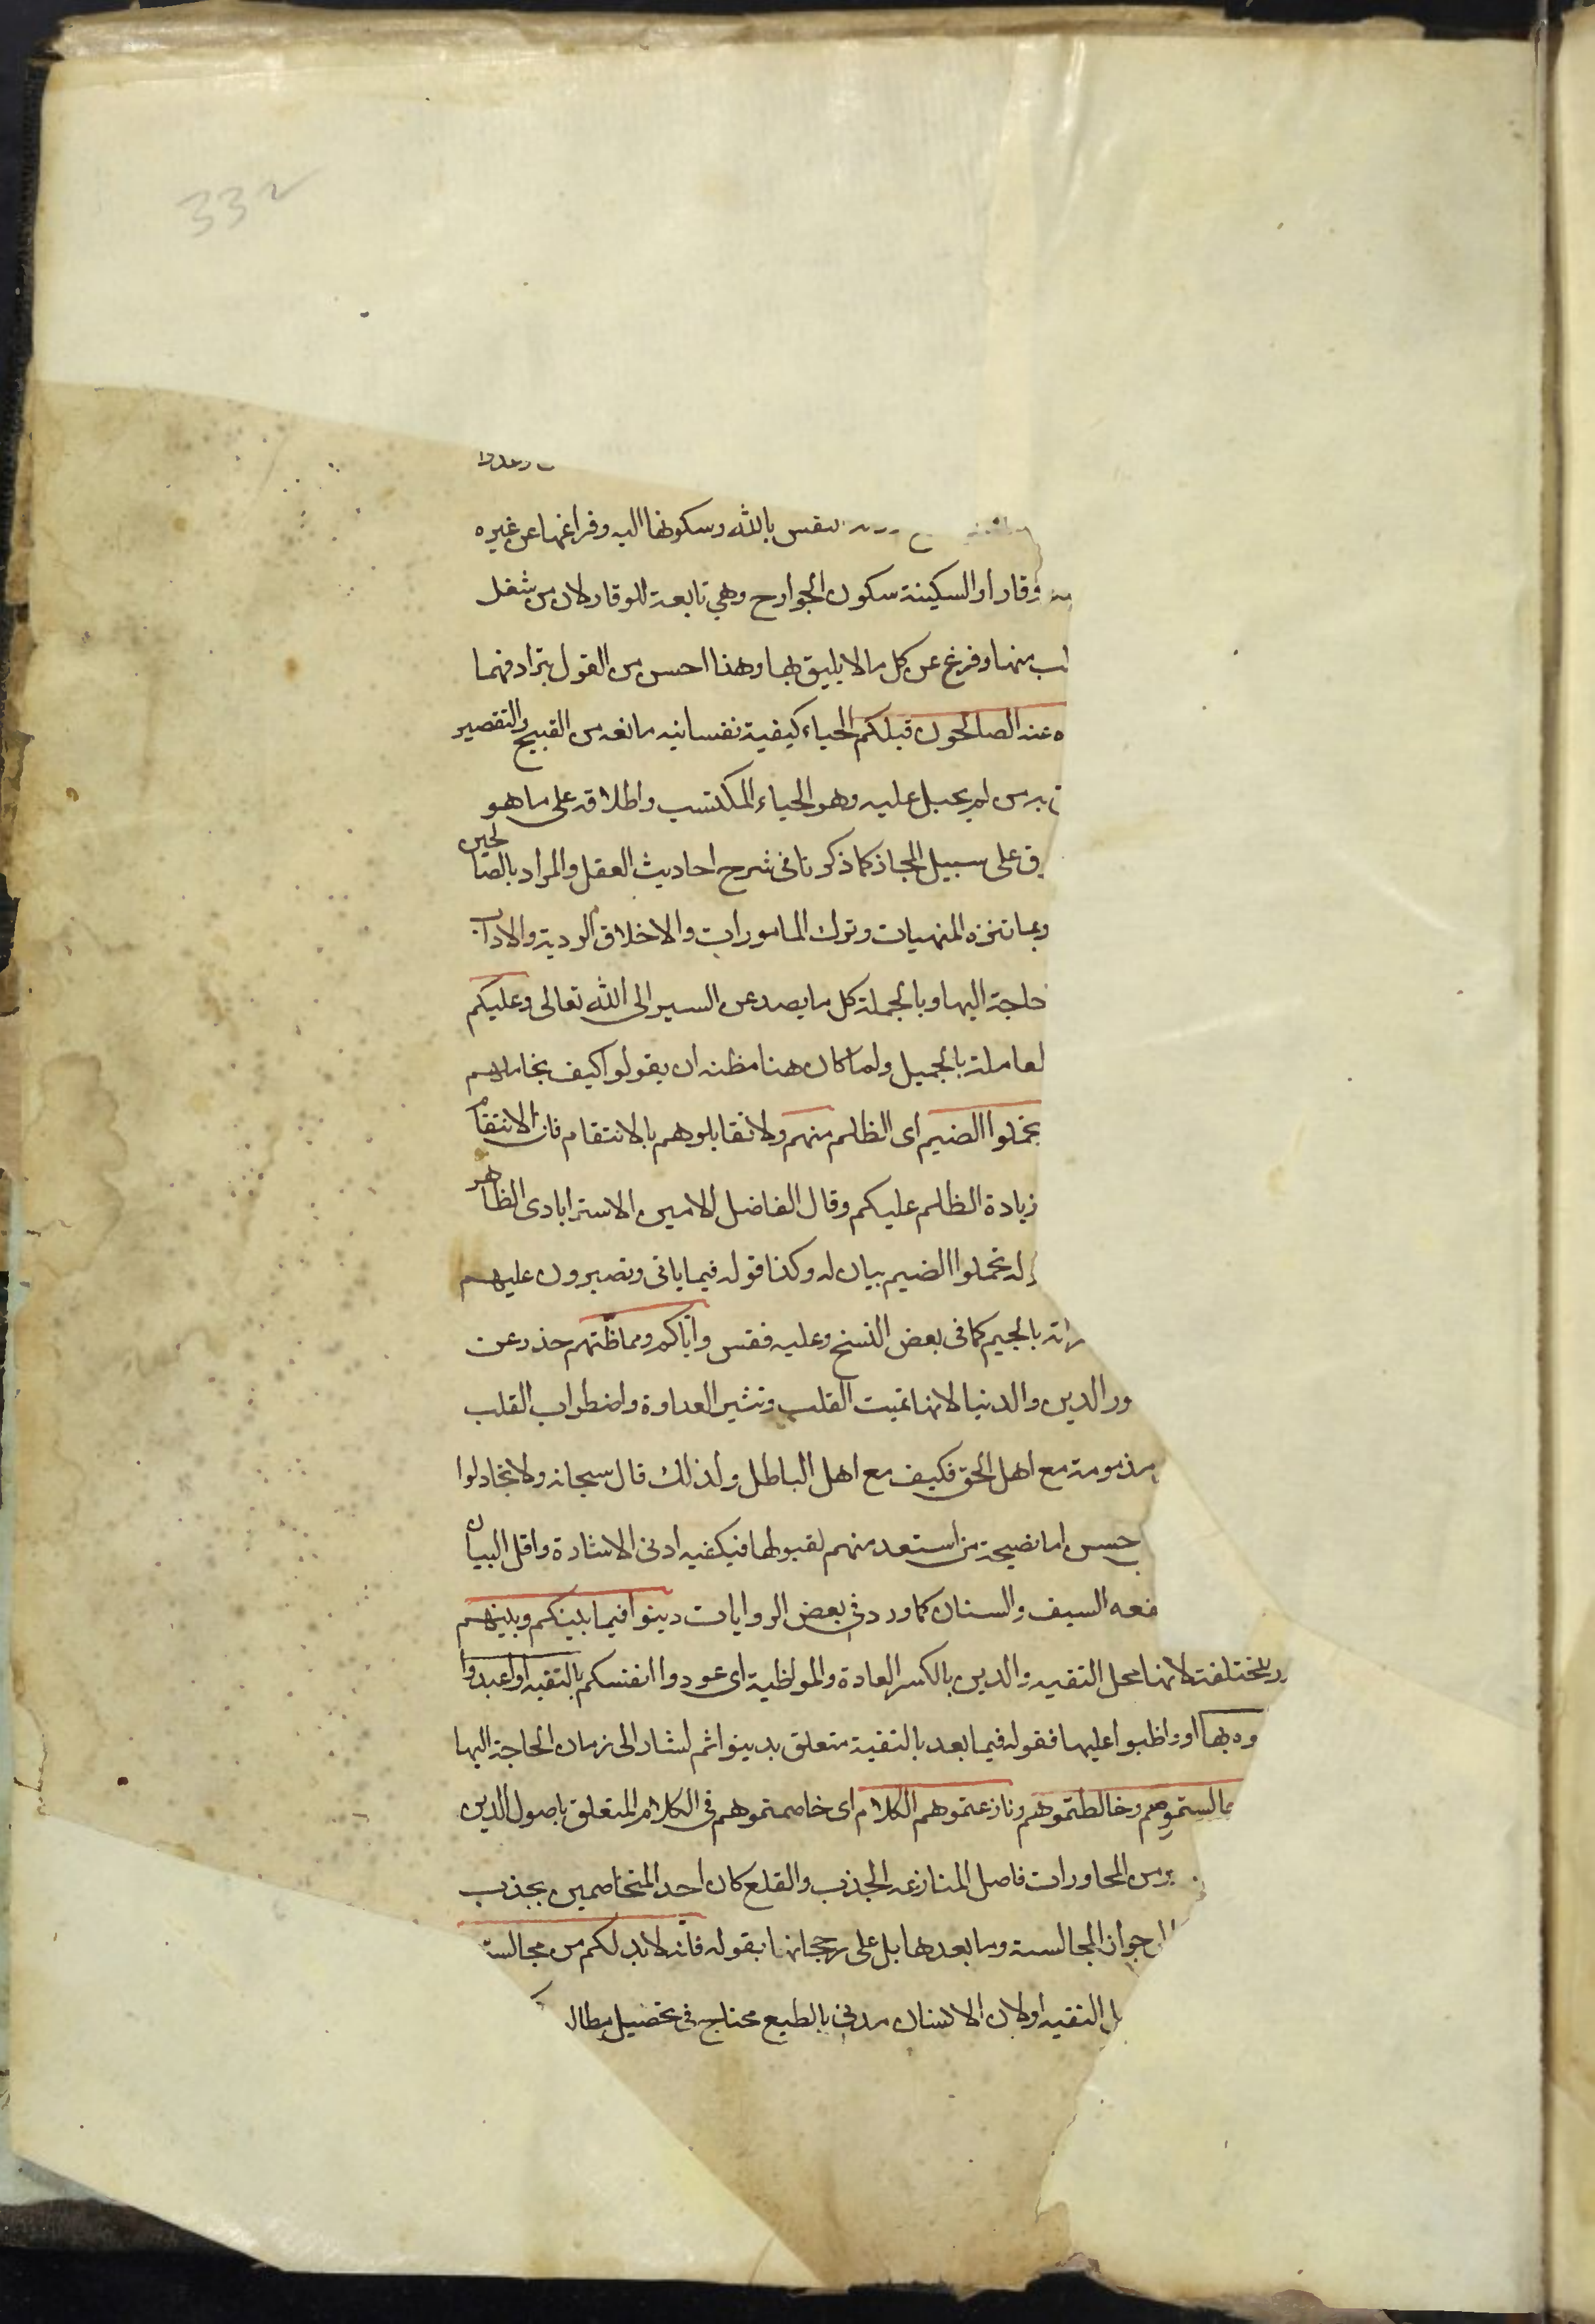 332
النفس بالله وسكونها اليه وفراغها عن غيره
وقارا والسكينة سكون الجوارح وهي تابعة للوقار لان من شغل
منها وفرغ عن كل ما لا يليق بها وهذا احسن من القول بترادفهما
ه عنه الصالحون قبلكم الحياء كيفية نفسانيه مانعه من القبيح والتقصير
من لم يجبل عليه وهو الحياء المكتسب واطلاقه على ما هو
على سبيل المجاز كما ذكرنا فى شرح احاديث العقل والمراد بالصالحين
وبما تنزه المنهيات وترك المامورات والاخلاق الردية والاداب
حاجة اليها وبالجملة كل ما يصد عن السير الى الله تعالى وعليكم
لعاملة بالجميل ولما كان هنا مظنه ان يقولوا كيف نجاملهم
تحملوا الضيم اى الظلم منهم ولا تقابلوهم بالانتقام فان الانتقام
زيادة الظلم عليكم وقال الفاضل الامين الاسترابادى الظاهر
له تحملوا الضيم بيان له وكذا قوله فيما ياتى وتصبرون عليهم
بالجيم كما فى بعض النسخ وعليه فقس واياكم ومماظتهم حذر عن
ور الدين والدنيا لانها تميت القلب وتثير العداوة واضطراب القلب
مذمومة مع اهل الحق فكيف مع اهل الباطل ولذلك قال سبحانه ولا تجادلوا
حسن اما نصيحة من استعد منهم لقبولها فيكفيه ادنى الاشارة واقل البيان
فعه السيف والسنان كما ورد فى بعض الروايات دينوا فيما بينكم وبينهم
المختلفة لانها محل التقيه والدين بالكسر العادة والمواظبة اى عودوا انفسكم بالتقيه او اعبدوا
وه بها او واظبوا عليها فقوله فيما بعد بالتقية متعلق بدينوا ثم اشار الى زمان الحاجة اليها
جالستموهم وخالطتموهم ونازعتموهم الكلام اى خاصمتموهم فى الكلام المتعلق باصول الدين
من المحاورات فاصل المنازعه الجذب والقلع كان احد المتخاصمين يجذب
جواز المجالسة وما بعدها بل على رجحانها بقوله فانه لابد لكم من مجالستهم
التقيه او لان الانسان مدنى بالطبع محتاج فى تحصيل مطالبه